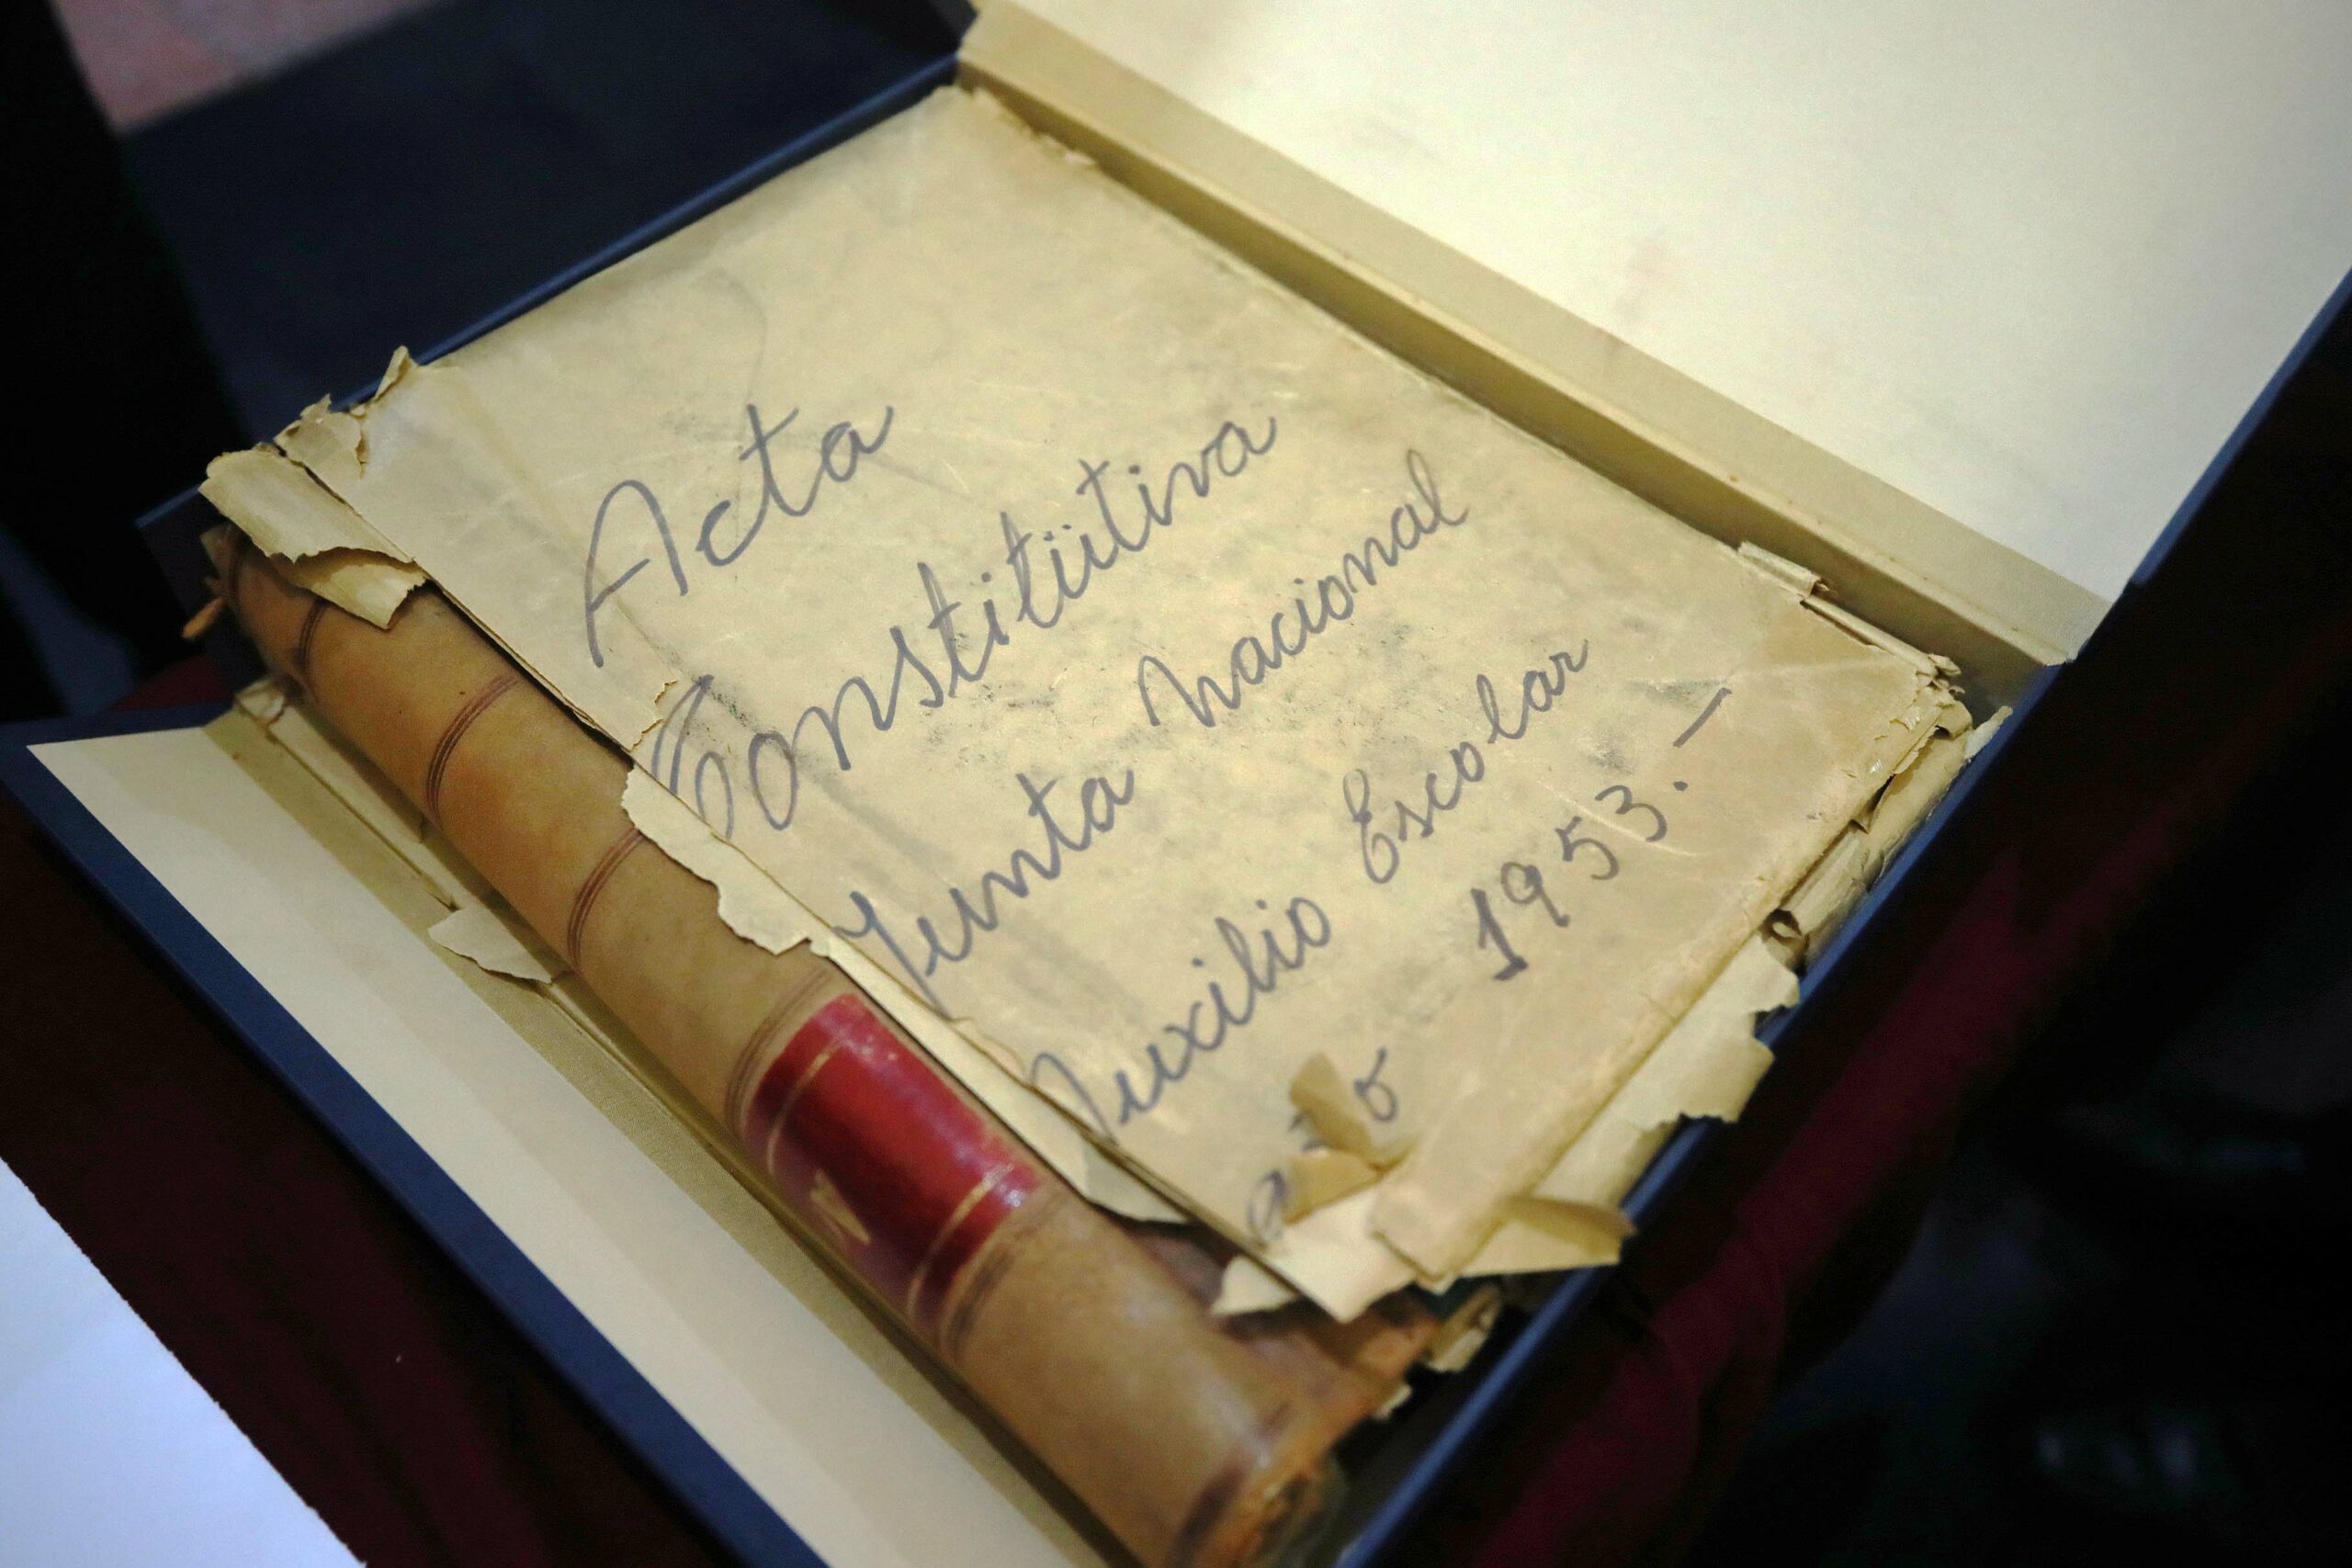 Acta
Constitütiva
Junta Nacional
Auxilio Escolar
año 1953.-